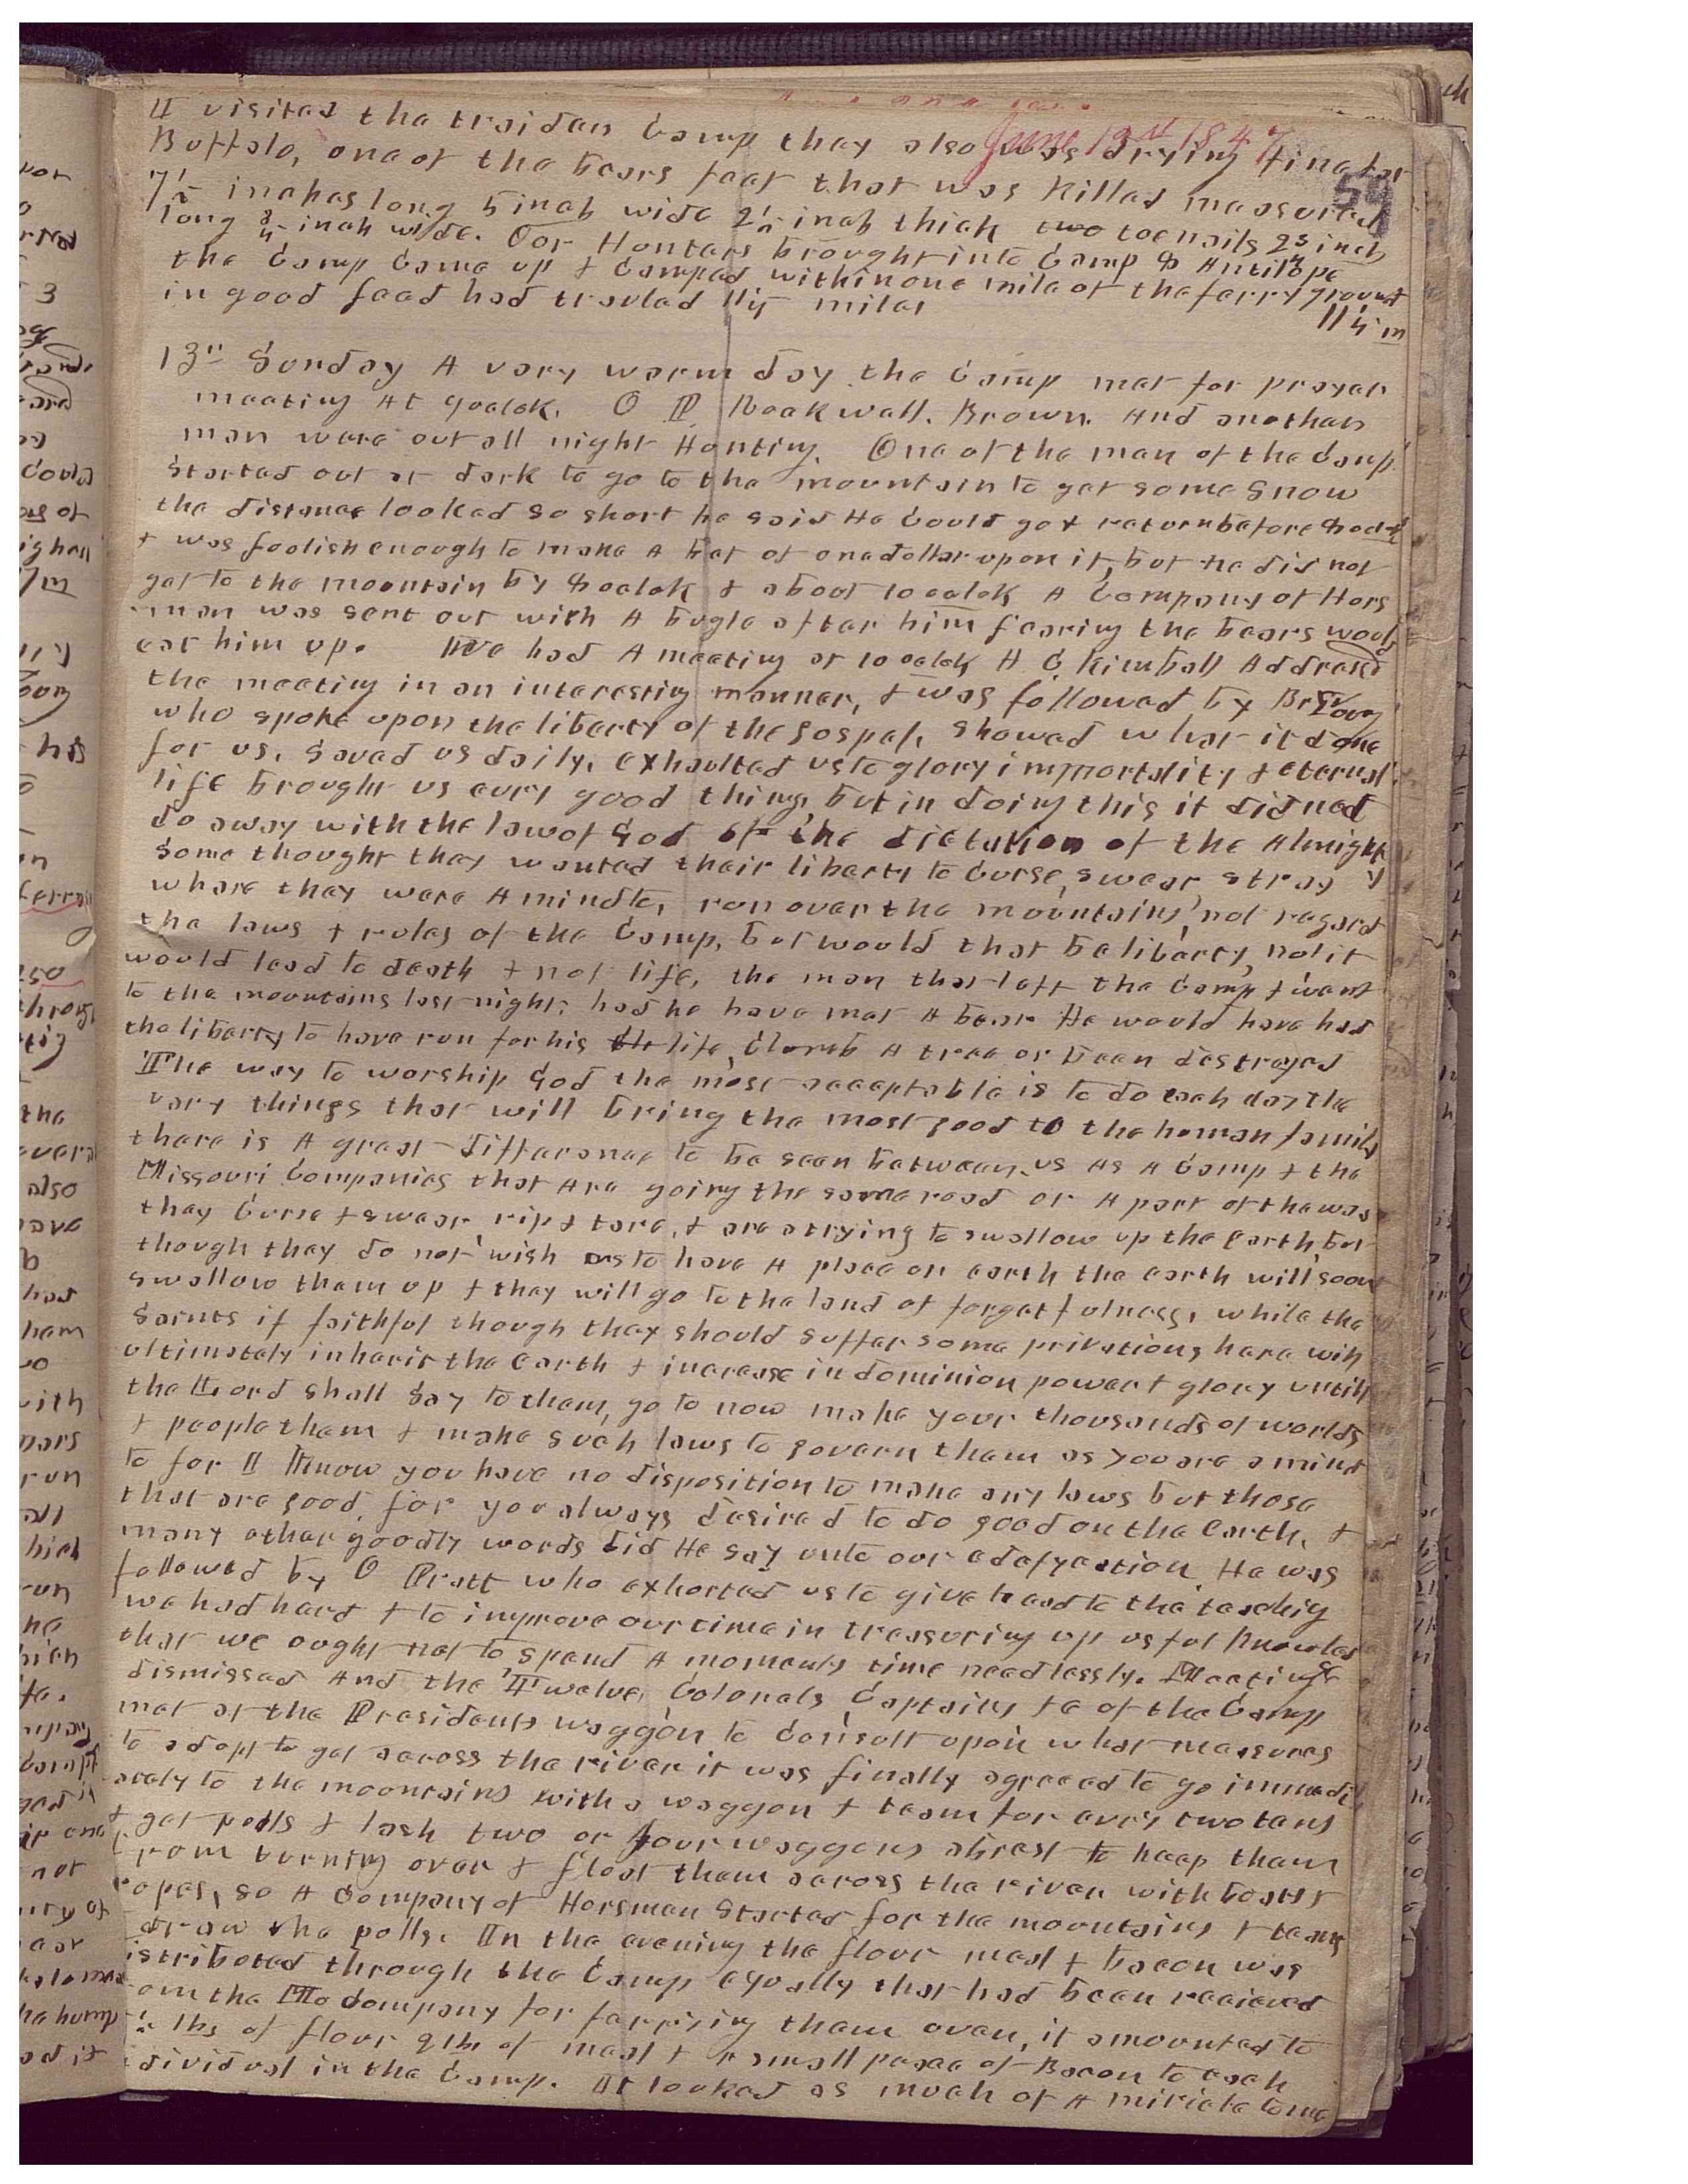 June 12th 1847
59
I visited the traiders Camp they also was drying fine fat
Buffalo, one of the bears feet that was killed measured
7½ inches long 5 inch wide 2½ inch thick two toe nails 2¾ inch
long ¾ inch wide. Our Hunters brought into Camp 8 Antilope
the Camp Came up & Camped within one mile of the ferry ground
in good feed had travled 11¼ miles
11¼ m
13th Sunday A very warm day the Camp met for prayer
meeting At 9oclok. O P Rockwell. Brown. And another
man were out all night Hunting. One of the men of the Camp
started out at dark to go to the mountain to get some snow
the distance looked so short he said He Could go & return before 8ocl
& was foolish enough to make A bet of one dollar upon it, but he did not
get to the mountain by 8oclok & about 10 oclok A Company of Hors
man was sent out with A bugle after him fearing the bears would
eat him up. We had A meeting at 10 oclok H C Kimball Addresd
the meeting in an interesting manner, & was followed by Br Young
who spoke upon the liberty of the gospel, showed what it done
for us, saved us daily, exhaulted us to glory immortality & eternal
life brought us evry good thing, but in doing this it did not
do away with the law of God or the dictation of the Almighty
Some thought they wanted their liberty to Curse, swear, stray
where they were A mind to, run over the mountains, not regard
the laws & rules of the Camp, but would that be liberty, no it
would lead to death & not life, the man that left the Camp & went
to the mountains last night, had he have met A bear He would have had
the liberty to have run for his life, Clomb A tree or been destroyed
The way to worship God the most acceptable is to do each day the
very things that will bring the most good to the human family
there is A great differance to be seen between us As A Camp & the
Missouri Companies that Are going the same road or A part of the way
they Curse & swear, rip & tare, & are a trying to swallow up the earth, but
though they do not wish us to have A place on earth the earth will soon
swallow them up & they will go to the land of forgetfulness, while the
Saints if faithful though they should suffer some privations here will
ultimately inherit the earth & increase in dominion power & glory untill
the Lord shall say to them, go to now make your thousands of worlds
& people them & make such laws to govern them as you are a mind
to for I know you have no disposition to make any laws but those
that are good, for you always desired to do good on the earth, &
many other goodly words did He say unto our edafycation He was
followed by O Pratt who exhorted us to give heed to the teachig
we had hard & to improve our time in treasuring up usful knowled
ge
that we ought not to spend A moments time needlessly. Meeting
dismissed And the Twelve, Colonels, Captains &c of the Camp
met at the Presidents waggon to Consult upon what measures
to adopt to get across the river it was finally agreeed to go immedi
ately to the mountains with a waggon & team for evry two tens
& get polls & lash two or four waggons abrest to keep them
from turning over & float them across the river with boats &
ropes, so A Company of Horsman Started for the mountains & teams
draw the polls. In the evening the flour meal & bacon was
istributed through the Camp equally that had been recieved
om the Mo Company for farrying them over, it amounted to
lbs of flour 2 lbs of meal & A small peace of Bacon to each
dividual in the Camp. It looked as much of A miricle to me